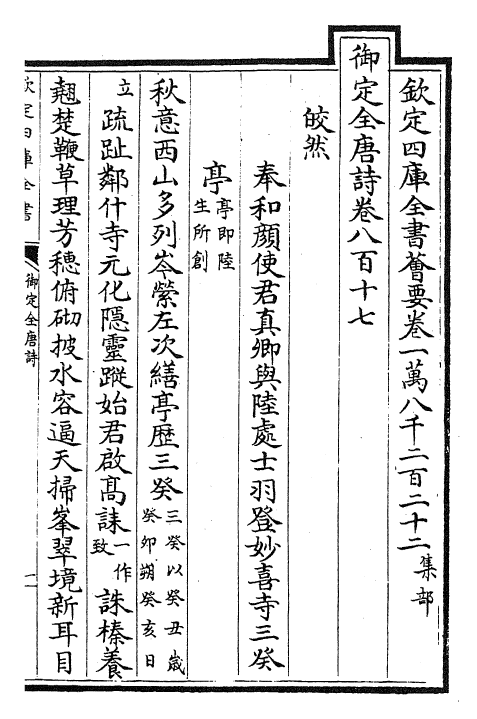 欽定四庫全書薈要卷一萬八千二百二十二集部
御定全唐詩卷八百十七
皎然
奉和顔使君真卿與陸處士羽登妙喜寺三癸
亭亭即陸生所創
秋意西山多列岑縈左次繕亭歴三癸三癸以癸丑歲癸卯朔癸亥日
立疏趾鄰什寺元化隱靈蹤始君啟髙誄一作致誅榛養
翹楚鞭草理芳穗俯砌披水容逼天掃峯翠境新耳目
欽定四庫全書
御定全唐詩
一